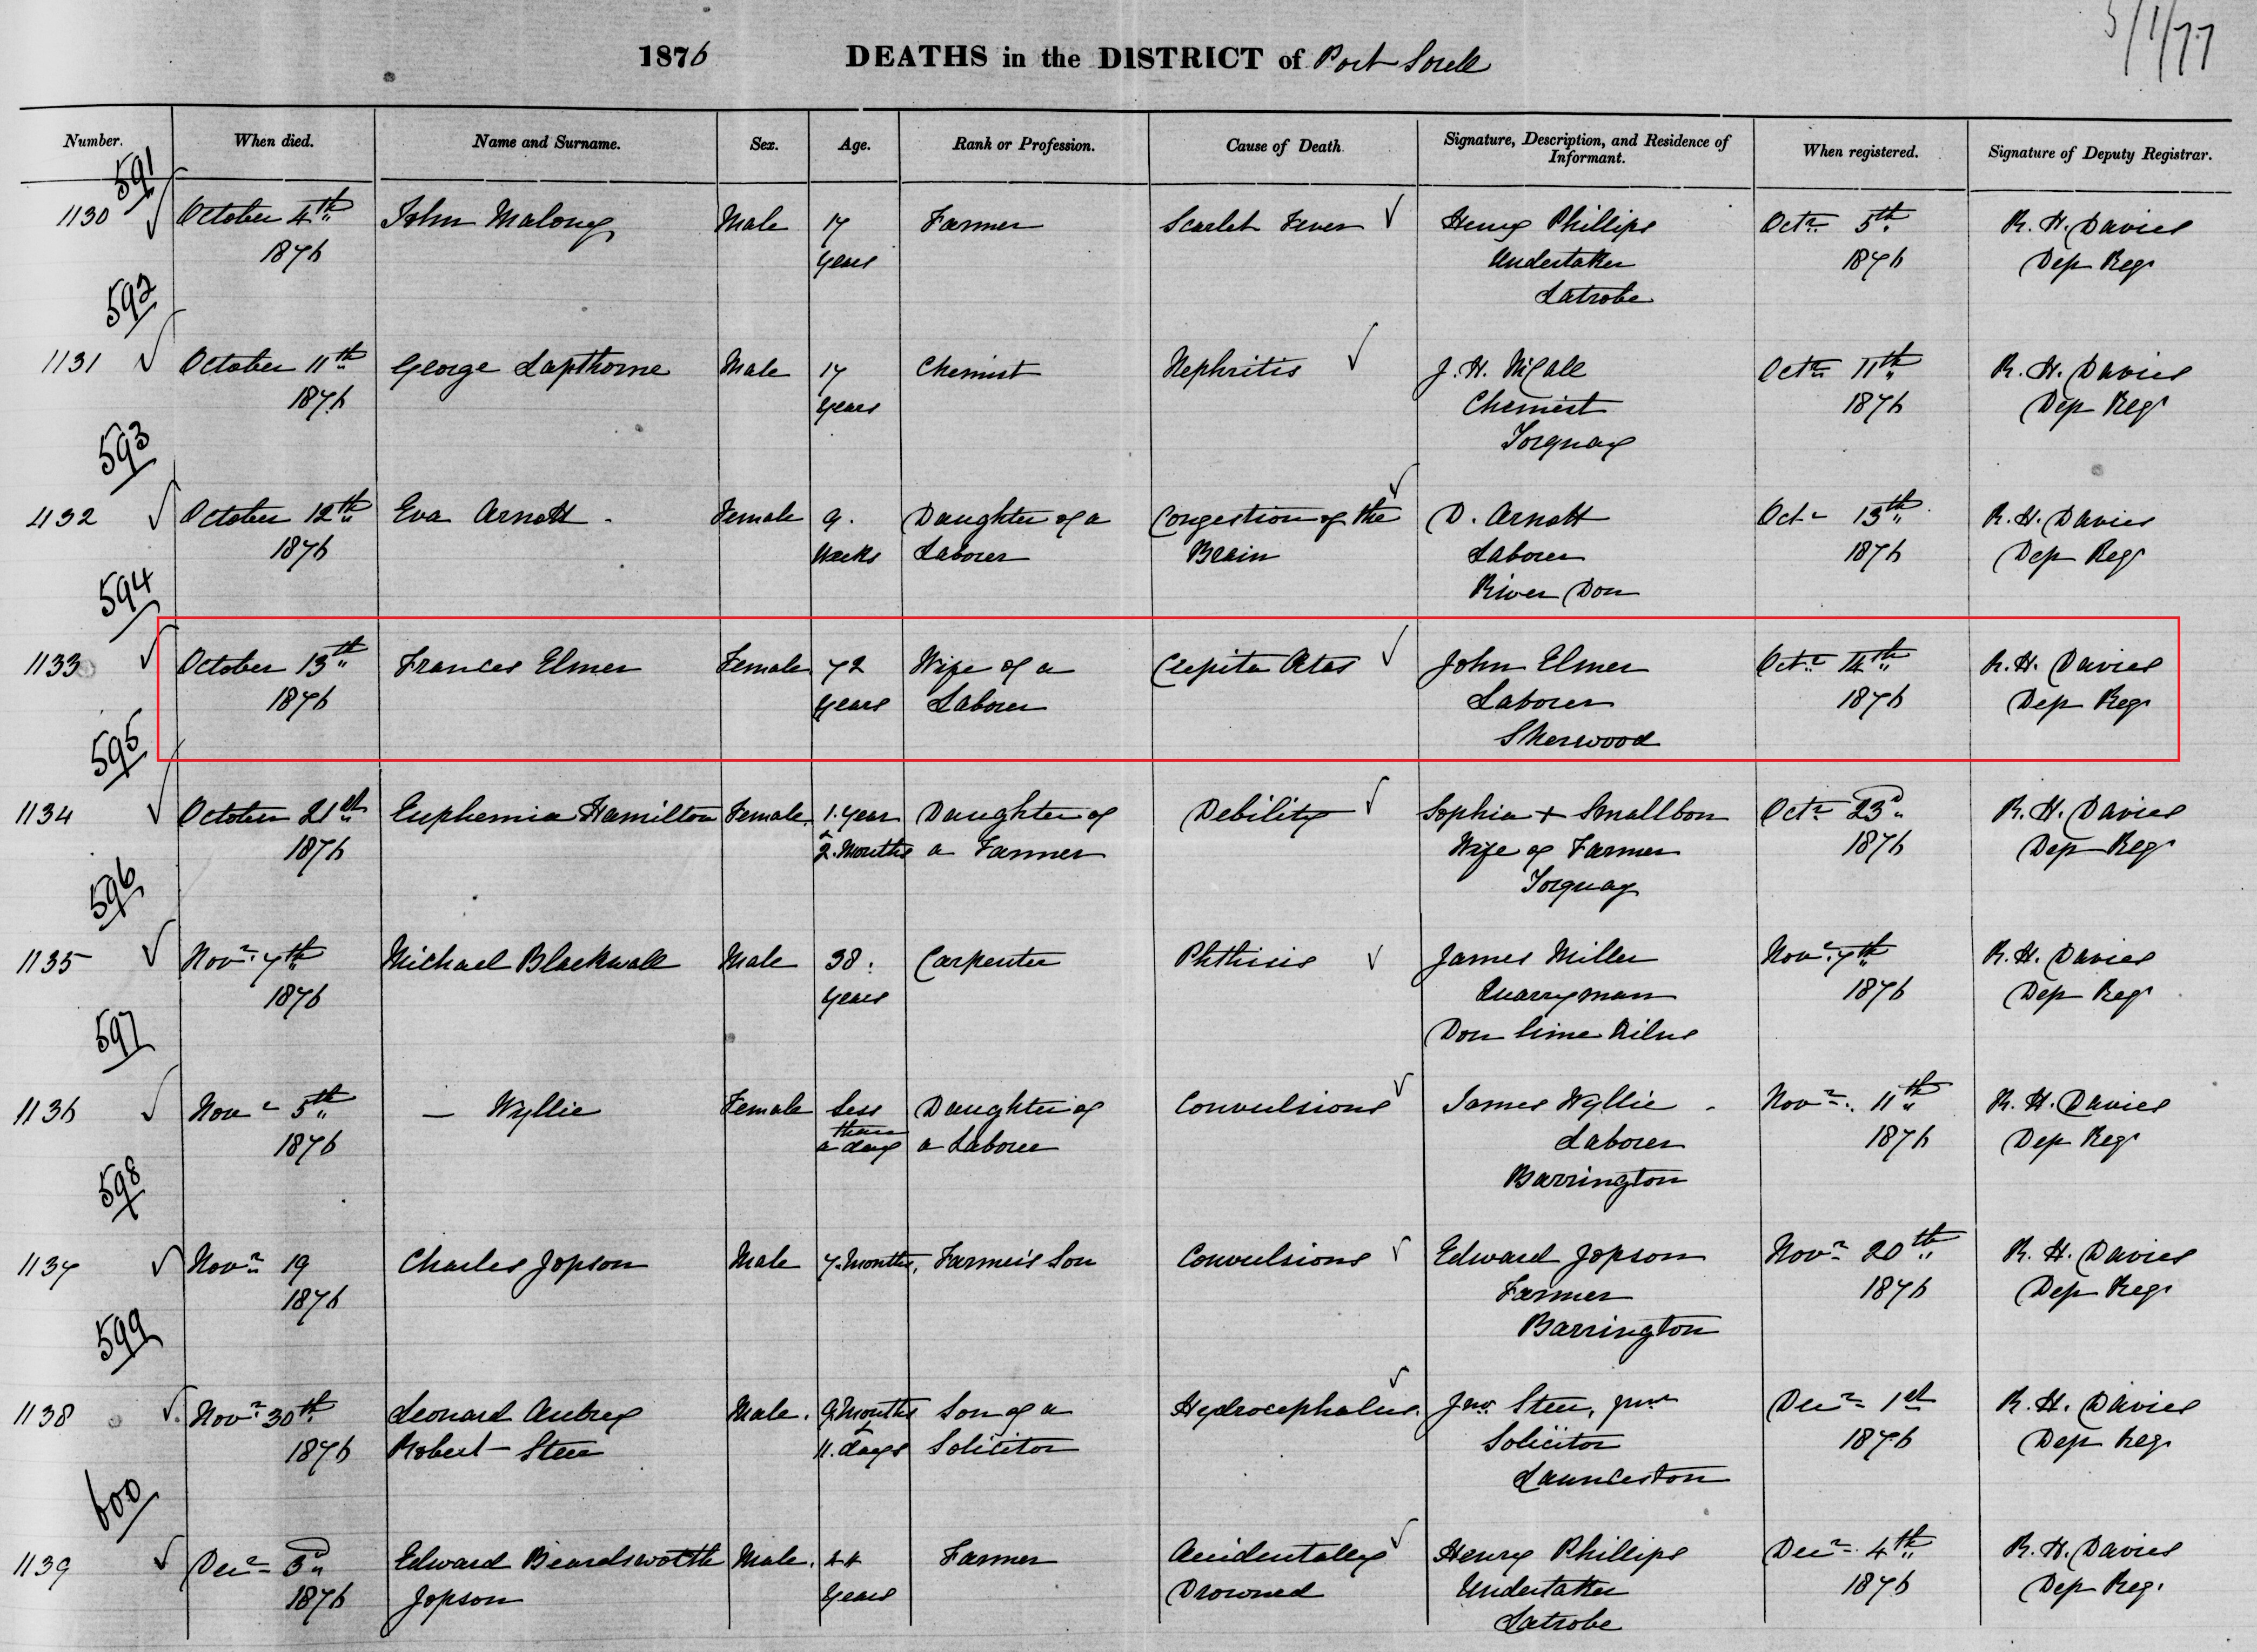 5/1/77
1876 DEATHS in the DISTRICT of Port Sorell
Number. When died. Name and Surname. Sex. Age. Rank or Profession. Cause of Death. Signature, Description, and Residence of Informant. When registered. Signature of Deputy Registrar.
591
1130 October 4th John Malony Male 17 Farmer Scarlet Fever Henry Phillips Octr 5th R. H. Davies
1876 years Undertaker 1876 Dep Regr
Latrobe
592
1131 October 11th George Lapthorne Male 17 Chemist Nephritis J. H. McCall Octr 11th R. H. Davies
1876 years Chemist 1876 Dep Regr
Torquay
593
1132 October 12th Eva Arnott Female 9. Daughter of a Congestion of the D. Arnott Oct 13th R. H. Davies
1876 Weeks Laborer Brain Laborer 1876 Dep Regr
River Don
594
1133 October 13th Frances Elmer Female 72 Wife of a Crepita Atas John Elmer Octr 14th R. H. Davies
1876 years Laborer Laborer 1876 Dep Regr
Sherwood
595
1134 October 21st Euphemia Hamilton Female. 1. year Daughter of Debility Sophia + Smallbon Octr 23d R. H. Davies
1876 2. Months a Farmer Wife of Farmer 1876 Dep Regr
Torquay
596
1135 Novr 7th Michael Blackwall Male 38. Carpenter Phthisis James Miller Novr 7th R. H. Davies
1876 years Quarryman 1876 Dep Regr
Don Lime Kilns
597
1136 Novr 5th — Wyllie Female Less Daughter of Convulsions James Wyllie Novr 11th R. H. Davies
1876 than a day a Laborer Laborer 1876 Dep Regr
Barrington
598
1137 Novr 19 Charles Jopson Male 7. Months. Farmer's Son Convulsions Edward Jopson Novr 20th R. H. Davies
1876 Farmer 1876 Dep Regr
Barrington
599
1138 Novr 30th Leonard Aubrey Male. 9. Months Son of a Hydrocephalus. Jno. Steer, junr Decr 1st R. H. Davies
1876 Robert Steer 11. days Solicitor Solicitor 1876 Dep Regr
Launceston
600
1139 Decr 3d Edward Beardsworth Male. 44 Farmer Accidentally Henry Phillips Decr 4th R. H. Davies
1876 Jopson years Drowned Undertaker 1876 Dep Reg.
Latrobe